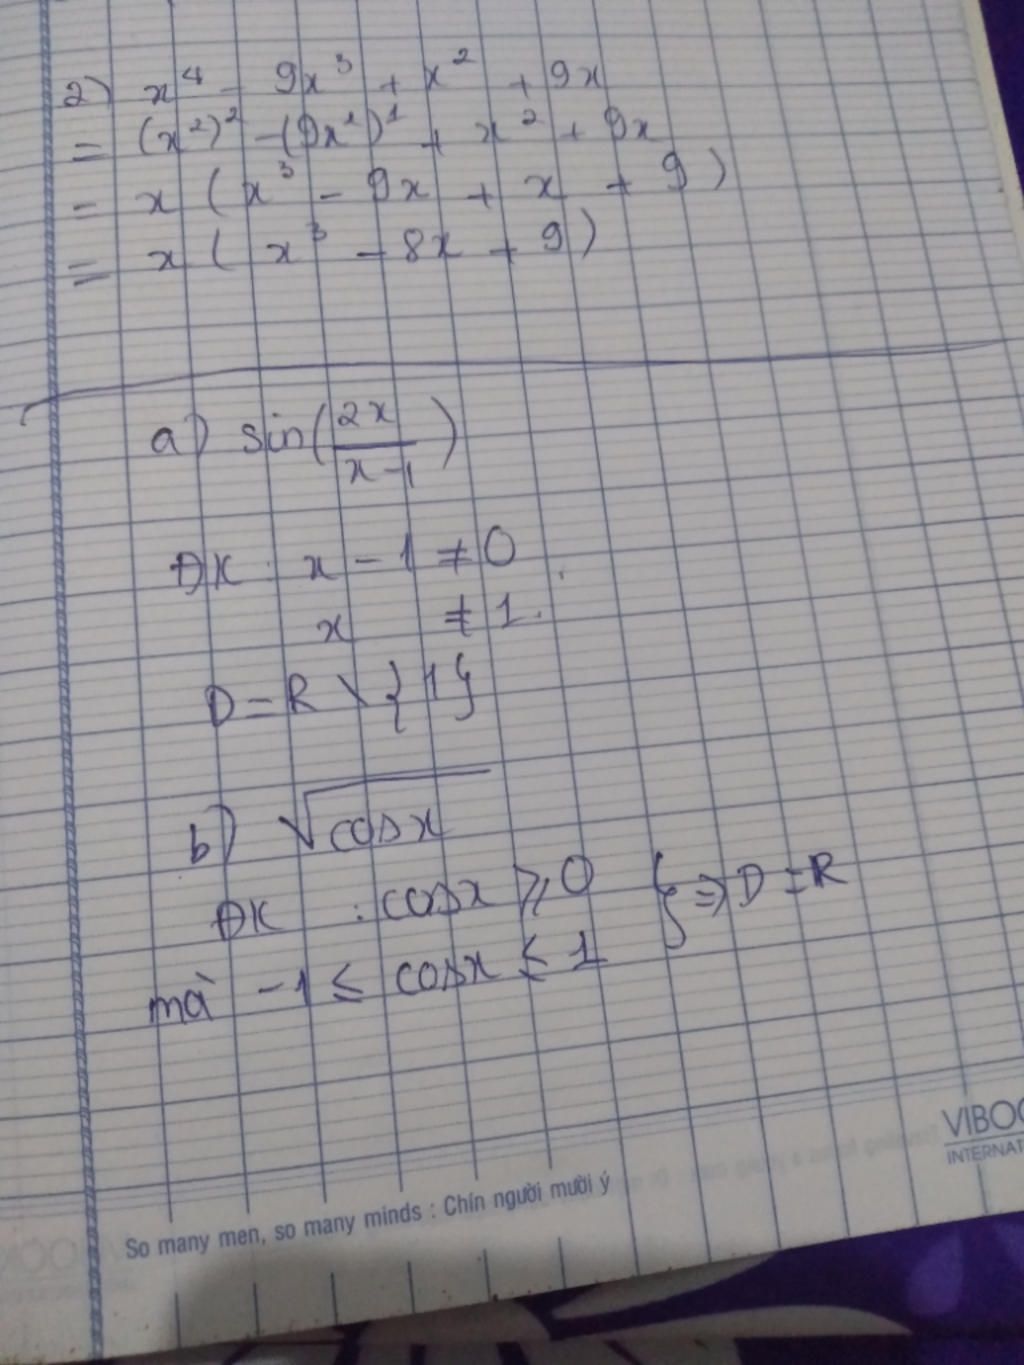 2) x⁴ - 9x³ + x² + 9x
= (x²)² - (9x¹)¹ + x² + 9x
= x ( x³ - 9x + x + 9 )
= x ( x³ - 8x + 9 )
a) sin(2x/x-1)
ĐK: x - 1 ≠ 0
x ≠ 1.
D = R \ {1}
b) √cosx
ĐK : cosx ⩾ 0 } => D = R
mà -1 ≤ cosx ≤ 1
VIBOO
INTERNAT
So many men, so many minds : Chín người mười ý